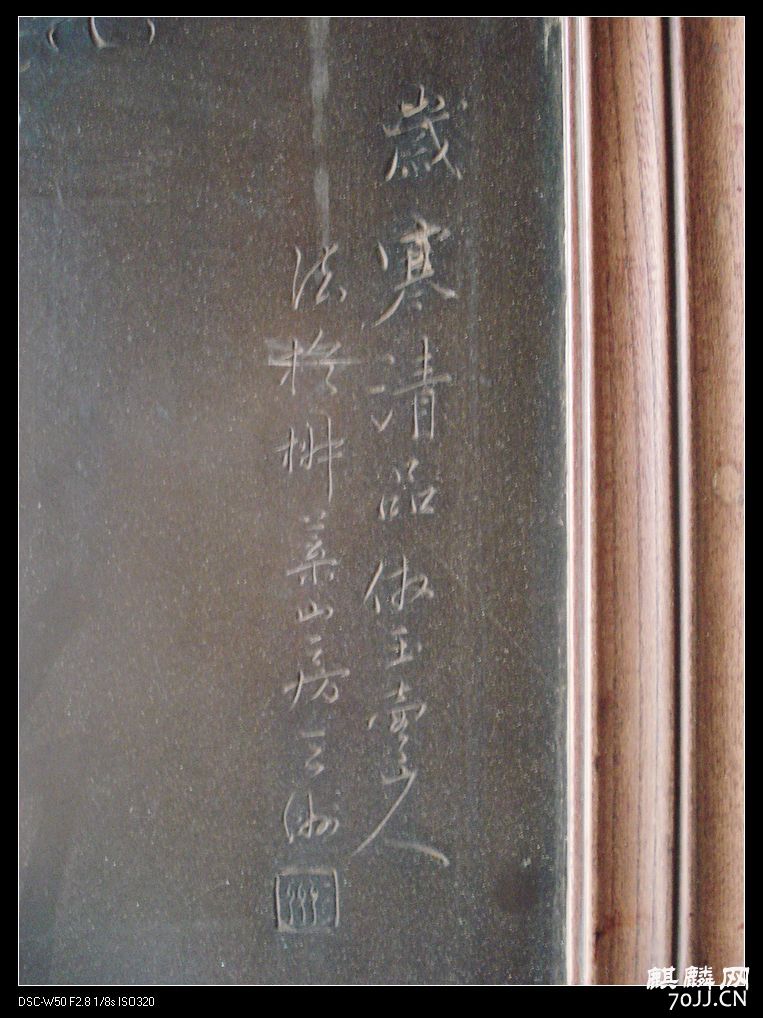 歲寒清品倣玉壺山人
法於栟葉山房雲洲
麒麟网
70JJ.CN
DSC-W50 F2.8 1/8s ISO320